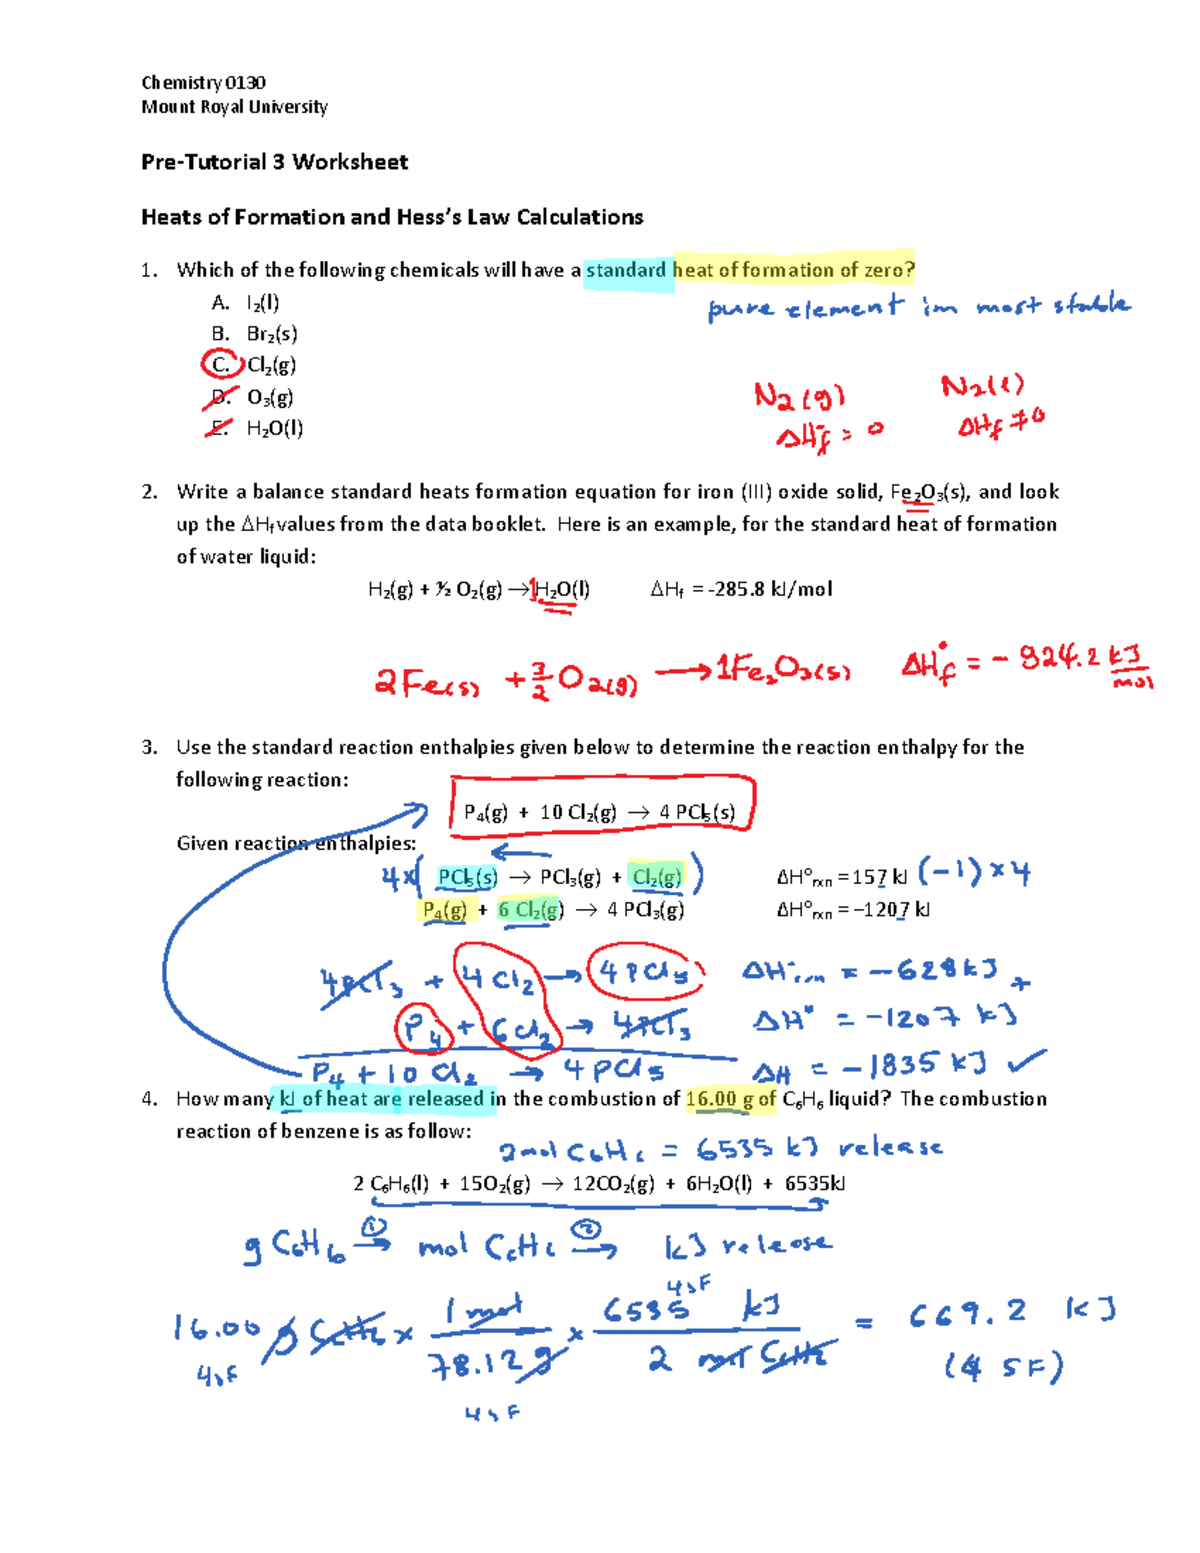 Chemistry 0130
Mount Royal University
Pre-Tutorial 3 Worksheet
Heats of Formation and Hess's Law Calculations
1. Which of the following chemicals will have a standard heat of formation of zero?
A. I₂(l)
pure element im most stable
B. Br₂(s)
C. Cl₂(g)
D. O₃(g)
E. H₂O(l)
N₂(g) N₂(l)
ΔH°f = 0 ΔHf ≠ 0
2. Write a balance standard heats formation equation for iron (III) oxide solid, Fe₂O₃(s), and look
up the ΔHf values from the data booklet. Here is an example, for the standard heat of formation
of water liquid:
H₂(g) + ½ O₂(g) → 1H₂O(l) ΔHf = -285.8 kJ/mol
2Fe(s) + 3/2 O₂(g) → 1Fe₂O₃(s) ΔH°f = -824.2 kJ/mol
3. Use the standard reaction enthalpies given below to determine the reaction enthalpy for the
following reaction:
P₄(g) + 10 Cl₂(g) → 4 PCl₅(s)
Given reaction enthalpies:
4×( PCl₅(s) → PCl₃(g) + Cl₂(g) ) ΔH°rxn = 157 kJ (-1) × 4
P₄(g) + 6 Cl₂(g) → 4 PCl₃(g) ΔH°rxn = –1207 kJ
4PCl₃ + 4Cl₂ → 4PCl₅ ΔH°rxn = -628 kJ +
P₄ + 6Cl₂ → 4PCl₃ ΔH° = -1207 kJ
P₄ + 10 Cl₂ → 4PCl₅ ΔH = -1835 kJ ✓
4. How many kJ of heat are released in the combustion of 16.00 g of C₆H₆ liquid? The combustion
reaction of benzene is as follow:
2mol C₆H₆ = 6535 kJ release
2 C₆H₆(l) + 15O₂(g) → 12CO₂(g) + 6H₂O(l) + 6535kJ
g C₆H₆ ① → mol C₆H₆ ② → kJ release
16.00 g C₆H₆ × 1 mol / 78.12 g × 6535 kJ / 2 mol C₆H₆ = 669.2 kJ
4sF 4sF 4sF (4 SF)